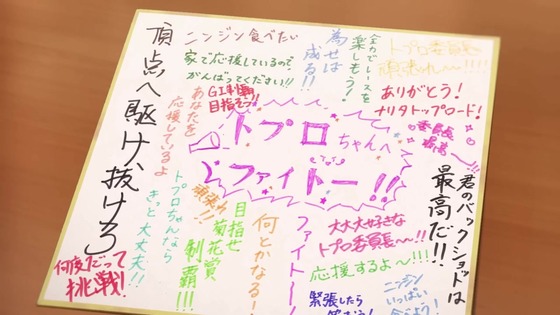 トプロちゃんへ
ファイトー!!
ニンジン食べたい
家で応援しているので、
がんばってください!!
為せば
成る!!
全力でレースを
楽しもう!
トプロ委員長
頑張れ〜!!!!
ありがとう!
ナリタトップロード!
委員長
最高〜!!
頂点へ駆け抜けろ
GⅠ制覇
目指そう!
あなたを
応援しているよ
トプロちゃんなら
きっと大丈夫!!
何度だって
挑戦!
頑張れ!!
目指せ
菊花賞
制覇!!!
何とかなる!
ファイトー!
大大大好きな
トプロ委員長〜!!
応援するよ〜!!!
緊張したら
君のバックショットは
最高だ!!
ニンジン
いっぱい